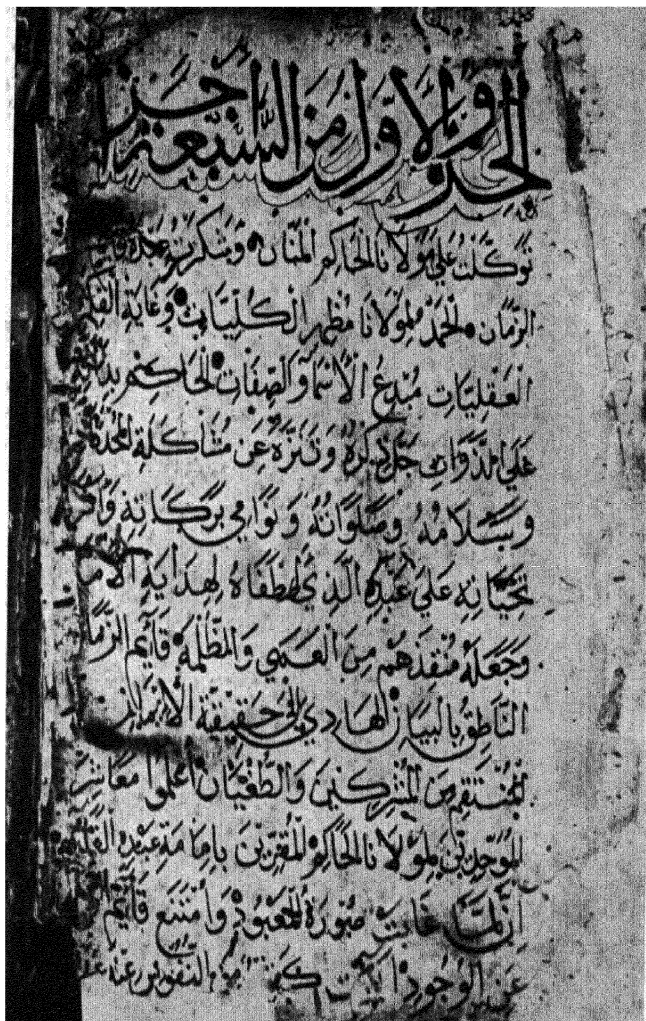 الجزء الأول من السبعة أجزاء
توكلت على مولانا الحاكم المنان وشكرت عبده قائم
الزمان الحمد لمولانا مظهر الكليات وغاية
العقليات مبدع الأسما والصفات الحاكم
على الذوات جل ذكره وتنزه عن مشاكلة
وسلامه وصلواته ونوامي بركاته
تحياته على عبده الذي اصطفاه لهداية الأمة
وجعله منقذهم من العمي والظلمة قآيم الزمان
الناطق بالبيان الهادي إلى حقيقة الإيمان
المنتقم من المشركين والطغيان اعلموا معاشر
الموحدين لمولانا الحاكم المقرين بإمامة عبده القآيم
إن لما غابت صورة المعبود وامتنع قآيم
عن الوجود